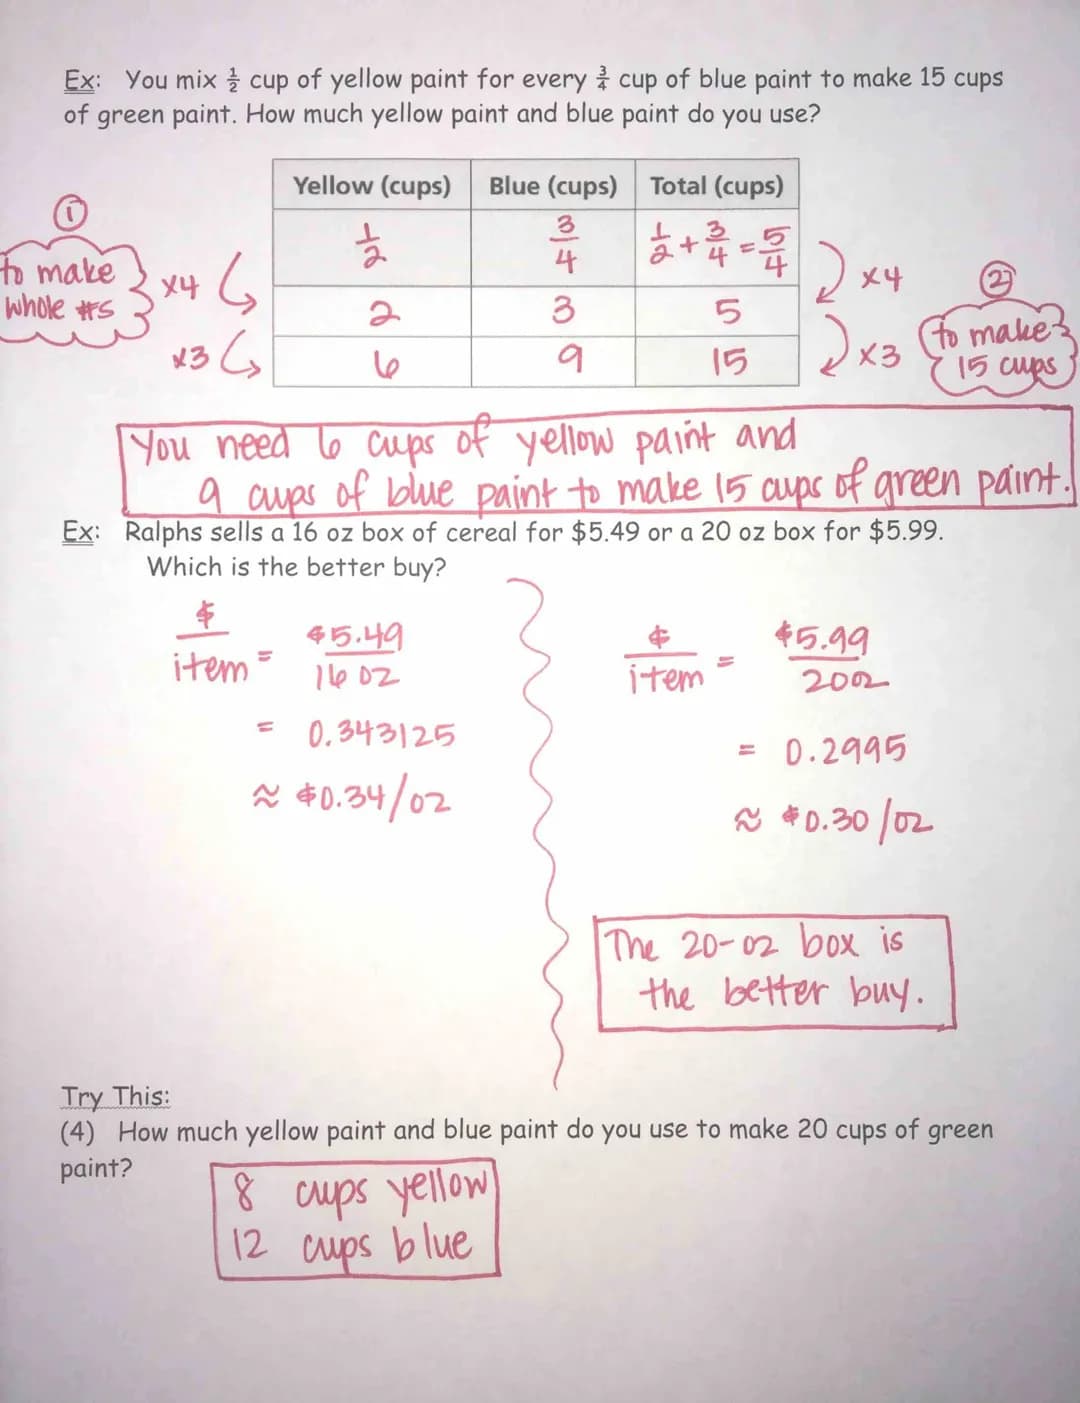 Ex: You mix 1/2 cup of yellow paint for every 3/4 cup of blue paint to make 15 cups
of green paint. How much yellow paint and blue paint do you use?
Yellow (cups) Blue (cups) Total (cups)
① to make whole #s
x4 1/2 3/4 1/2 + 3/4 = 5/4 x4
2 3 5
x3 6 9 15 x3
② to make 15 cups
You need 6 cups of yellow paint and
9 cups of blue paint to make 15 cups of green paint.
Ex: Ralphs sells a 16 oz box of cereal for $5.49 or a 20 oz box for $5.99.
Which is the better buy?
$/item = $5.49/16 oz
= 0.343125
≈ $0.34/oz
$/item = $5.99/20oz
= 0.2995
≈ $0.30/oz
The 20-oz box is
the better buy.
Try This:
(4) How much yellow paint and blue paint do you use to make 20 cups of green
paint?
8 cups yellow
12 cups blue